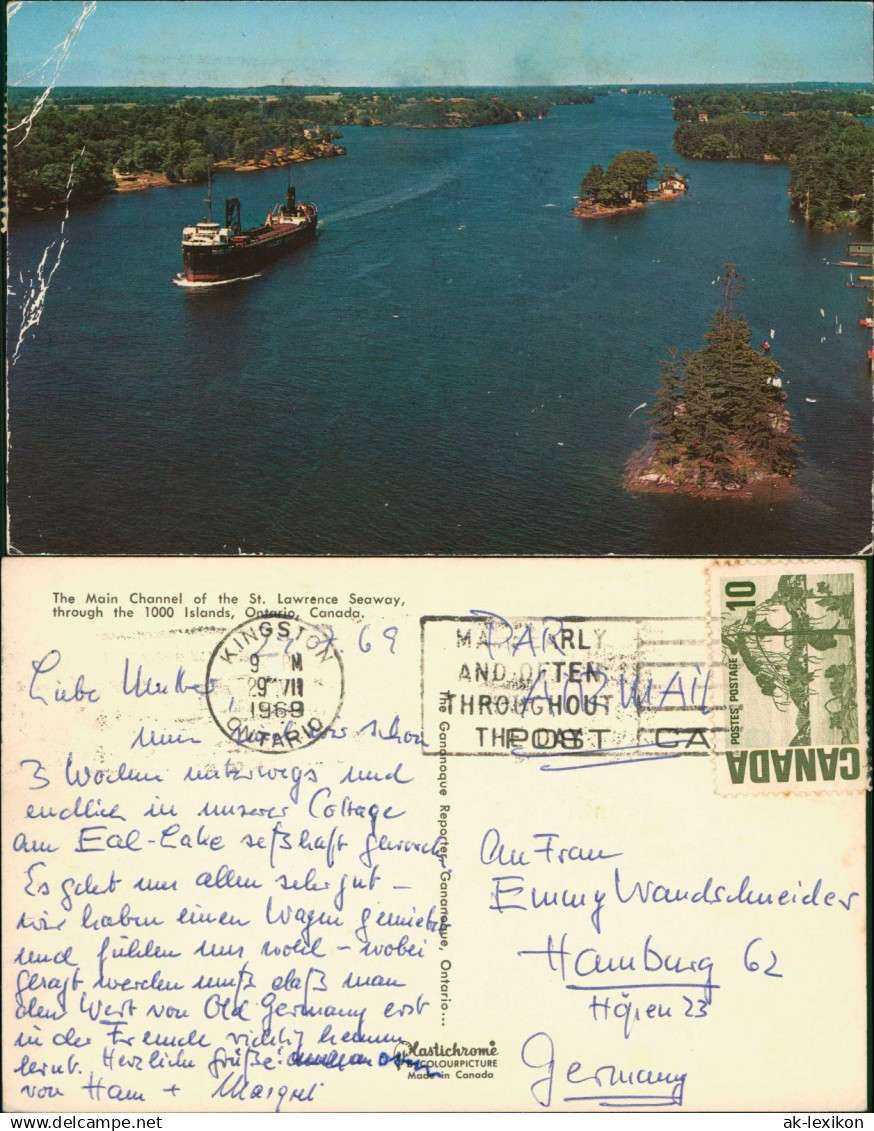 The Main Channel of the St. Lawrence Seaway,
through the 1000 Islands, Ontario, Canada.
KINGSTON
9 M
29 VII
1969
ONTARIO
MA EARLY
AND OFTEN
THROUGHOUT
THE DAY
POST CA
PAR
10
POSTES POSTAGE
CANADA
Liebe Mutter
nun sind wir schon
3 Wochen unterwegs und
endlich in unserer Cottage
am Eal-Lake seßhaft geworden.
Es geht uns allen sehr gut –
wir haben einen Wagen gemietet
und fühlen uns wohl – wobei
gesagt werden muß daß man
den Wert von Old Germany erst
in der Fremde richtig kennen
lernt. Herzliche Grüße
von Hans + Margret
The Gananoque Reporter, Gananoque, Ontario...
An Frau
Emmy Wandschneider
Hamburg 62
Högen 23
Germany
Plastichrome
COLOURPICTURE
Made in Canada
www.delcampe.net
ak-lexikon